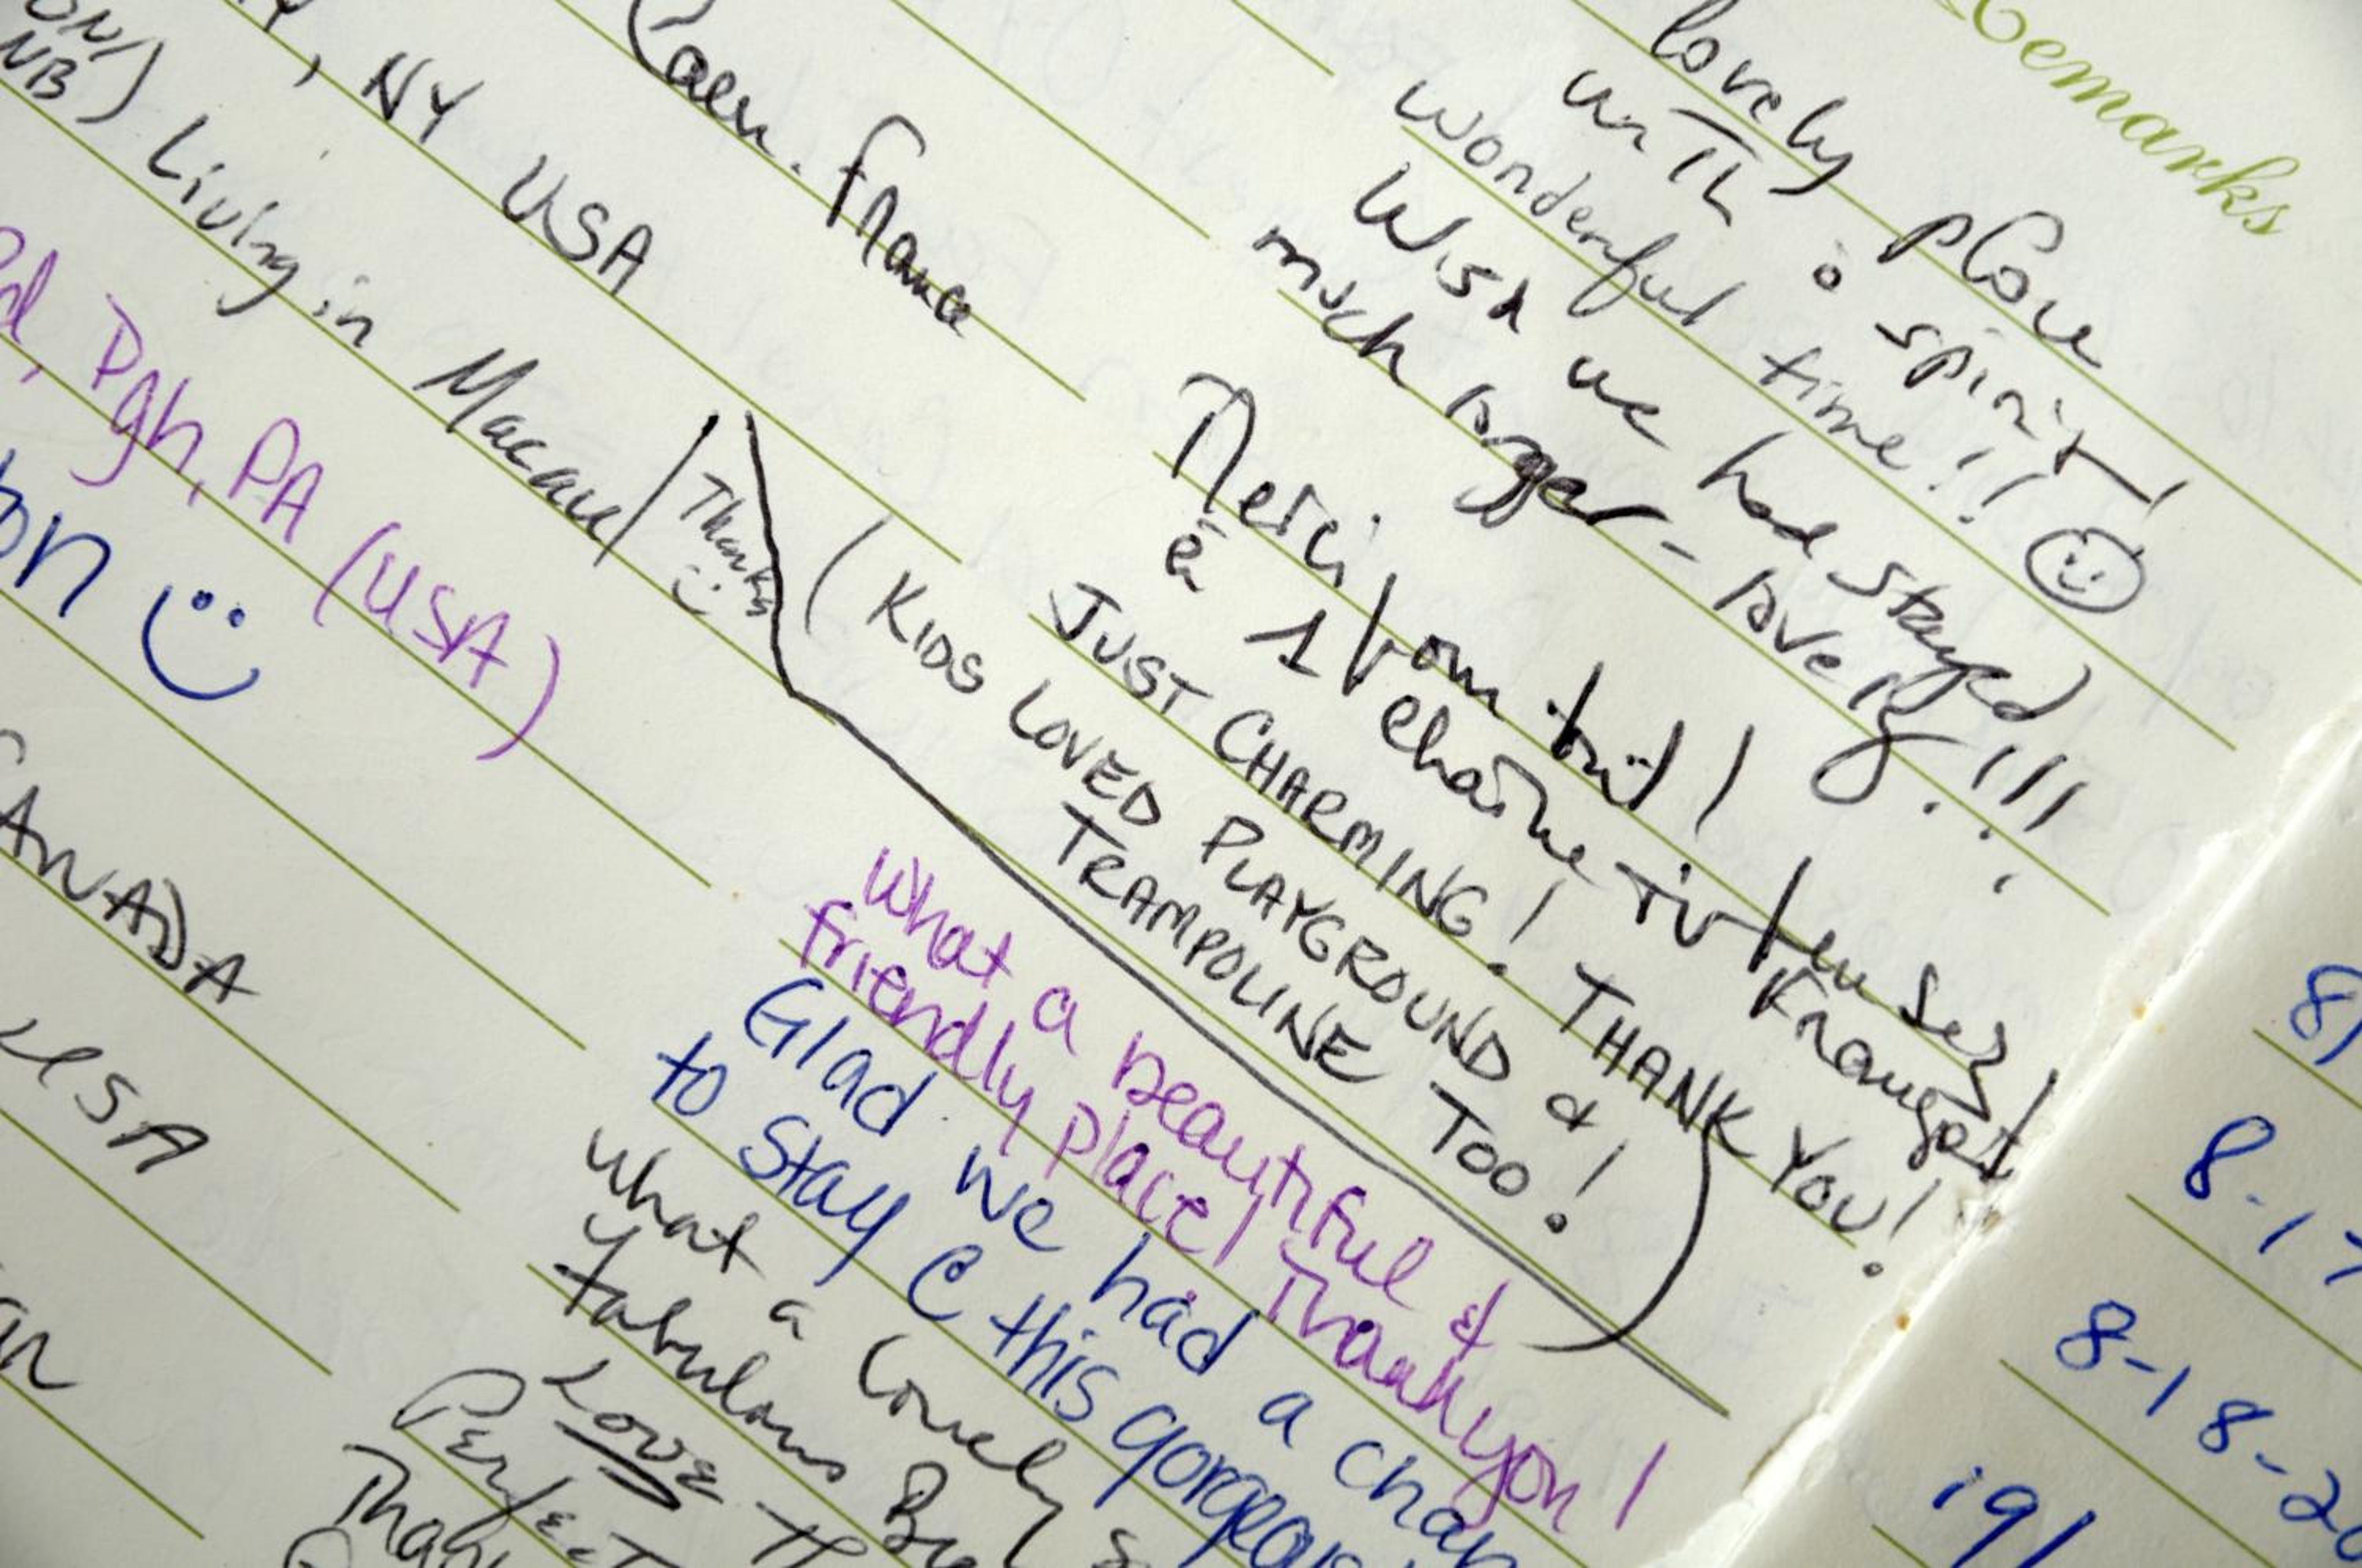 Remarks
lovely place
with a spirit!
wonderful time!!
Wish we had stayed
much longer - lovely!!!
Caen. France
Merci pour tout!
à 1 chaîne
Français
, NY USA
JUST CHARMING! THANK YOU!
(KIDS LOVED PLAYGROUND &
TRAMPOLINE TOO!)
ON/
NB) Living in Macau
Thanks
Pgh, PA (USA)
What a beautiful &
friendly place! Thank you!
on
Glad we had a chan
to stay @ this gorgeous
CANADA
What a lovely
fabulous
USA
Love
Perfect
8/
8-17
8-18-20
19/